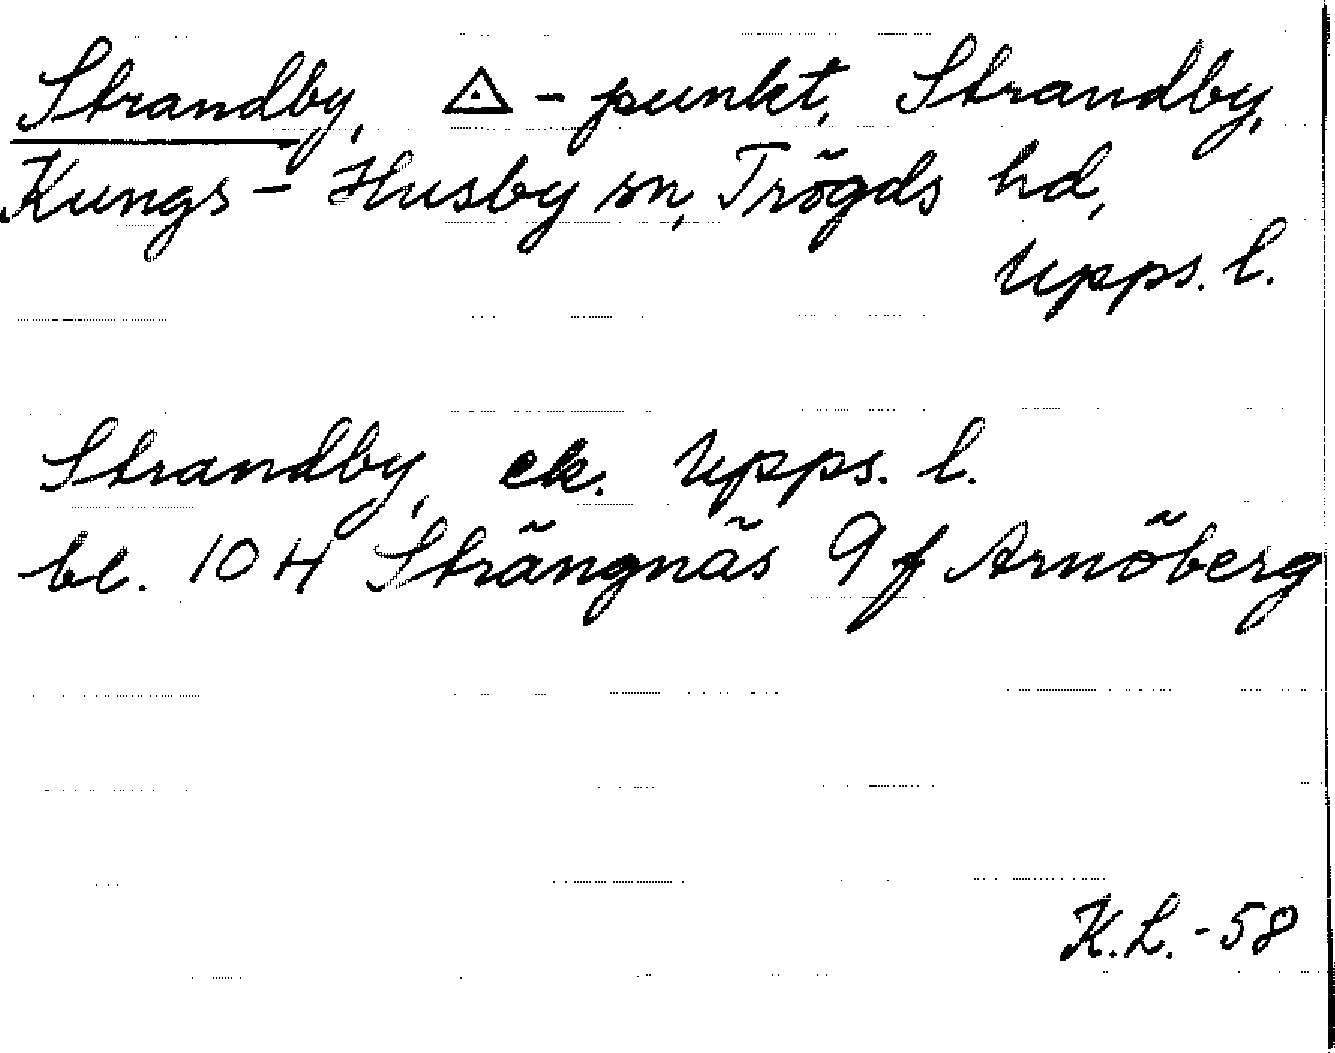 Strandby, △ - punkt, Strandby,
Kungs - Husby sn, Trögds hd,
Upps. l.
Strandby, ek. Upps. l.
bl. 10 H Strängnäs 9 f Arnöberg
K.L. - 58